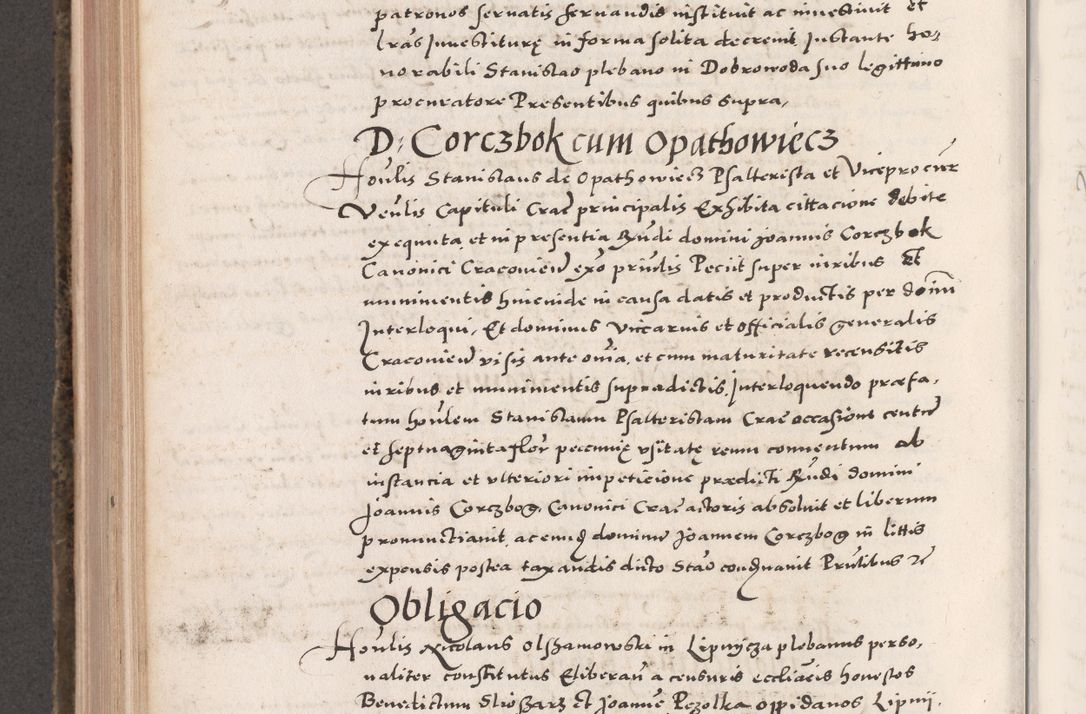 patronos servatis servandis instituit ac investivit et
lras Investiturę in forma solita decrevit Instante ho-
norabili Stanislao plebano in Dobrowoda suo legittimo
procuratore Presentibus quibus supra,
D: Corczbok cum Opathowiecz
Houlis Stanislaus de Opathowiecz Psalterista et Viceprocur
Venlis Capituli Crac principalis Exhibita cittacione debite
exequuta et in presentia Rndi domini Joannis Corczbok
Canonici Cracovien exo priulis Peciit super iuribus Et
munimentis hincinde in causa datis et productis per domm
Interloqui, Et dominus viccarius et officialis generalis
Cracovien visis ante omia, et cum maturitate recensitis
iuribus et munimentis supradictis, Interloquendo præfa,
tum houlem Stanislaum Psalteristam Crac occasione centum
et septuaginta flor pecunię vsitatę reum conventum ab
instancia et vlteriori impeticione prædicti Rndi domini
Joannis Corczbog, Canonici Crac actoris absoluit et liberum
pronunctiavit, ac eundem dominum Joannem Corczbog in littis
expensis postea taxandis dicto Stao condnavit Prntibus etc
Obligacio
Houlis Nicolaus Olszamowski in Lipnycza plebanus perso,
naliter constitutus Eliberavit a censuris ecclasticis honestos
Benedictum Slioszarz Et Joannem Pezolka oppidanos Lipnii,